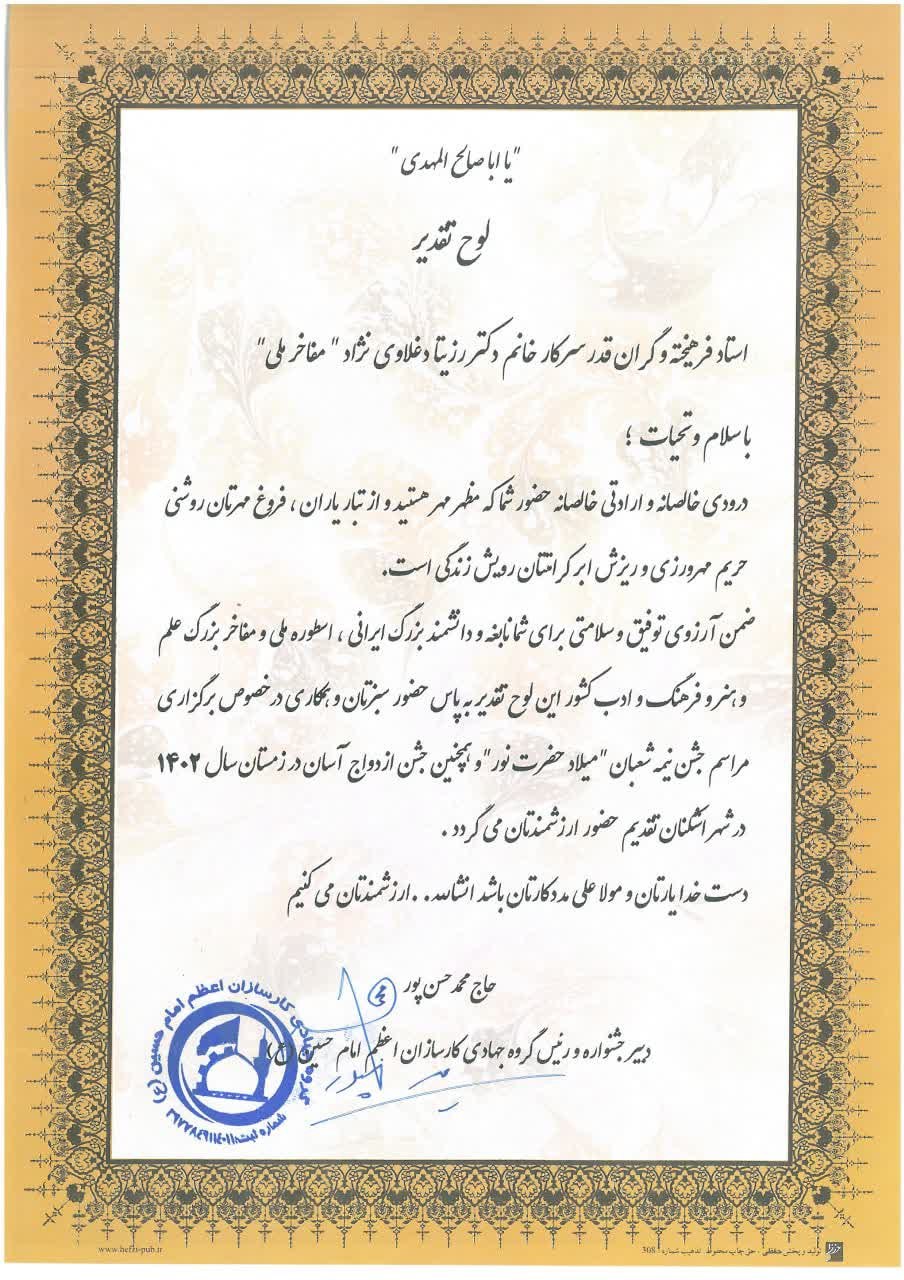 "یا ابا صالح المهدی"
لوح تقدیر
استاد فرهیخته و گران قدر سرکار خانم دکتر رزیتا دغلاوی نژاد "مفاخر ملی"
با سلام و تحیات ؛
درودی خالصانه و ارادتی خالصانه حضور شما که مظهر مهر هستید و از تبار یاران ، فروغ مهرتان روشنی
حریم مهرورزی و ریزش ابر کرامتتان رویش زندگی است.
ضمن آرزوی توفیق و سلامتی برای شما نابغه و دانشمند بزرگ ایرانی ، اسطوره ملی و مفاخر بزرگ علم
و هنر و فرهنگ و ادب کشور این لوح تقدیر به پاس حضور سبزتان و همکاری در خصوص برگزاری
مراسم جشن نیمه شعبان "میلاد حضرت نور" و همچنین جشن ازدواج آسان در زمستان سال ۱۴۰۲
در شهر اشکنان تقدیم حضور ارزشمندتان می گردد .
دست خدا یارتان و مولا علی مددکارتان باشد انشالله. . .ارزشمندتان می کنیم
حاج محمد حسن پور
دبیر جشنواره و رئیس گروه جهادی کارسازان اعظم امام حسین (ع)
گروه جهادی کارسازان اعظم امام حسین (ع)
شماره ثبت:
www.hefzi-pub.ir
تولید و پخش حفظی . حق چاپ محفوظ . تذهیب شماره : 308